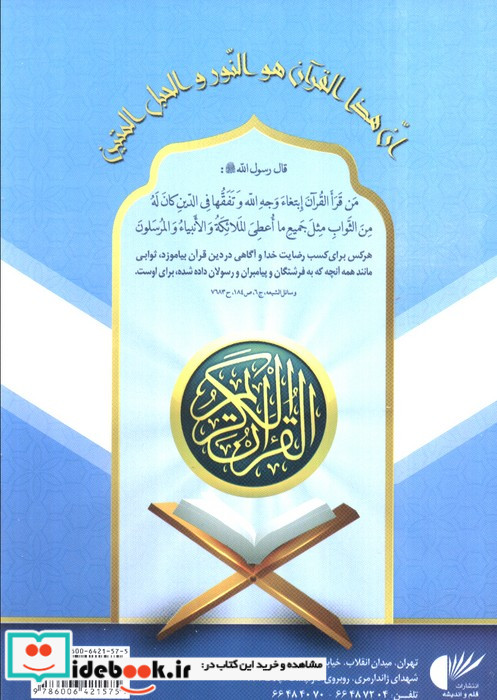 انّ هذا القرآن هو النّور و الحبل المتین
قال رسول الله ﷺ :
مَن قَرَأ القُرآنَ إبتغاءَ وَجهِ اللّه وَ تَفَقُّهاً فِی الدّینِ کانَ لَهُ
مِنَ الثَّوابِ مِثلَ جَمیعِ ما أُعطِیَ المَلائِکَةُ وَ الأنبیاءُ وَ المُرسَلونَ
هرکس برای کسب رضایت خدا و آگاهی در دین قرآن بیاموزد، ثوابی
مانند همه آنچه که به فرشتگان و پیامبران و رسولان داده شده، برای اوست.
وسائل‌الشیعه، ج۶، ص۱۸۴، ح۷۶۸۳
القرآن الکریم
600-6421-57-5
9786006421575
مشاهده و خرید این کتاب در:
idebook.ir
تهران، میدان انقلاب، خیابان
شهدای ژاندارمری، روبروی
تلفن: ۶۶۴۸۷۲۰۴ - ۶۶۴۸۴۰۷۰
انتشارات
قلم و اندیشه